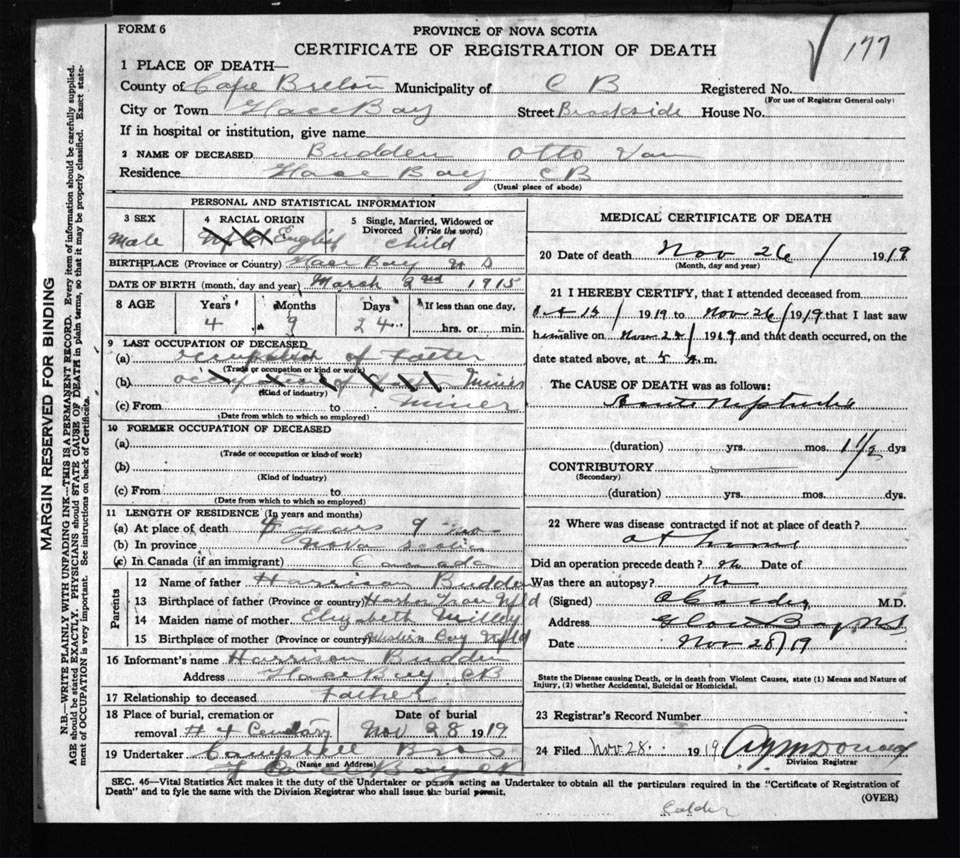 FORM 6
PROVINCE OF NOVA SCOTIA
CERTIFICATE OF REGISTRATION OF DEATH
177
1 PLACE OF DEATH—
County of Cape Breton Municipality of C B Registered No.
(For use of Registrar General only)
City or Town Glace Bay Street Brookside House No.
If in hospital or institution, give name
2 NAME OF DECEASED Budden Otto Van
Residence Glace Bay CB
(Usual place of abode)
PERSONAL AND STATISTICAL INFORMATION
3 SEX
Male
4 RACIAL ORIGIN
English
5 Single, Married, Widowed or
Divorced (Write the word)
child
BIRTHPLACE (Province or Country) Glace Bay N S
DATE OF BIRTH (month, day and year) March 2nd 1915
8 AGE Years Months Days If less than one day,
4 9 24 hrs. or min.
9 LAST OCCUPATION OF DECEASED
(a) occupation of Father
(Trade or occupation or kind of work)
(b) Miner
(Kind of industry)
(c) From to Miner
(Date from which to which so employed)
10 FORMER OCCUPATION OF DECEASED
(a)
(Trade or occupation or kind of work)
(b)
(Kind of industry)
(c) From to
(Date from which to which so employed)
11 LENGTH OF RESIDENCE (In years and months)
(a) At place of death 4 years 9 mo
(b) In province Nova Scotia
(c) In Canada (if an immigrant) Canada
Parents
12 Name of father Harrison Budden
13 Birthplace of father (Province or country) Nfld
14 Maiden name of mother Elizabeth
15 Birthplace of mother (Province or country) Nfld
16 Informant's name Harrison Budden
Address Glace Bay CB
17 Relationship to deceased Father
18 Place of burial, cremation or Date of burial
removal Nov 28 1919
19 Undertaker Campbell Bros
(Name and Address)
Glace Bay CB
MEDICAL CERTIFICATE OF DEATH
20 Date of death Nov 26 / 1919
(Month, day and year)
21 I HEREBY CERTIFY, that I attended deceased from
1919 to Nov 26/1919 that I last saw
him alive on 1919 and that death occurred, on the
date stated above, at 5 m.
The CAUSE OF DEATH was as follows:
Acute Nephritis
(duration) yrs. mos. 1 1/2 dys
CONTRIBUTORY
(Secondary)
(duration) yrs. mos. dys.
22 Where was disease contracted if not at place of death?
at home
Did an operation precede death? No Date of
Was there an autopsy? No
(Signed) M.D.
Address Glace Bay NS
Date Nov 28/19
State the Disease causing Death, or in death from Violent Causes, state (1) Means and Nature of
Injury, (2) whether Accidental, Suicidal or Homicidal.
23 Registrar's Record Number
24 Filed Nov. 28 1919
Division Registrar
SEC. 46—Vital Statistics Act makes it the duty of the Undertaker or person acting as Undertaker to obtain all the particulars required in the "Certificate of Registration of
Death" and to fyle the same with the Division Registrar who shall issue the burial permit.
(OVER)
Calder
MARGIN RESERVED FOR BINDING
N.B.—WRITE PLAINLY WITH UNFADING INK—THIS IS A PERMANENT RECORD. Every item of information should be carefully supplied.
AGE should be stated EXACTLY. PHYSICIANS should STATE CAUSE OF DEATH in plain terms, so that it may be properly classified. Exact state-
ment of OCCUPATION is very important. See instructions on back of Certificate.